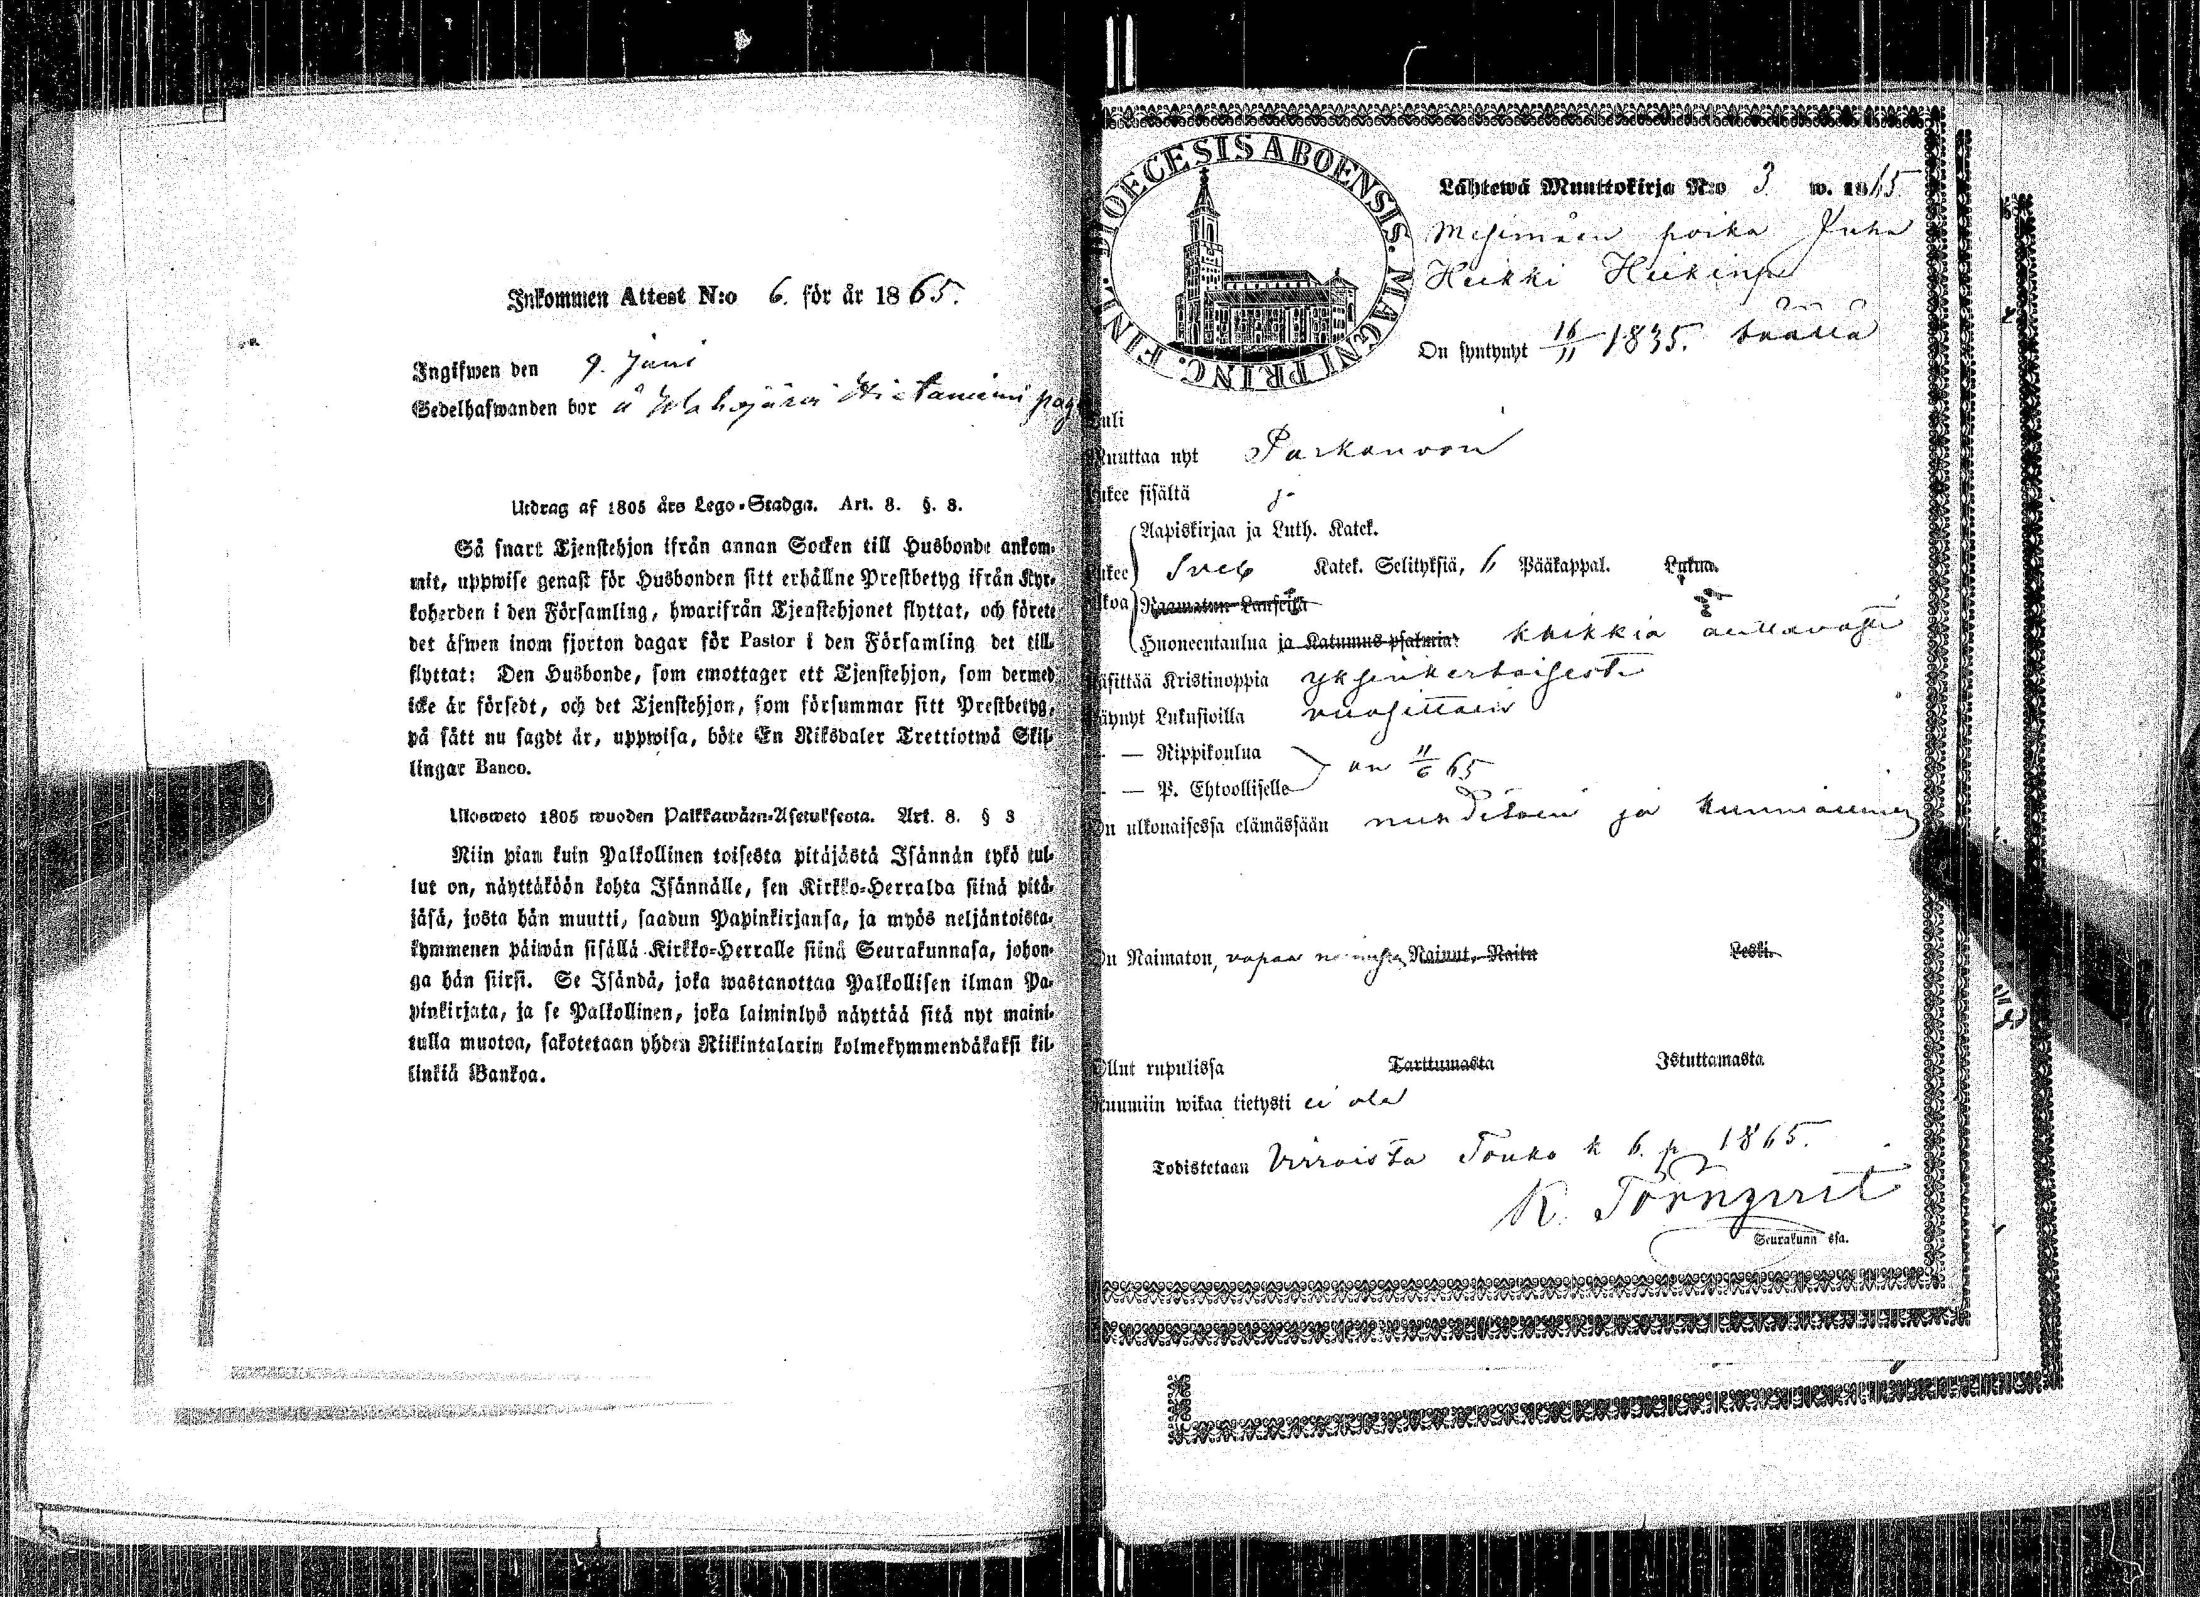 Inkommen Attest N:o 6. för år 1865.
Ingifwen den 9. Juni
Sedelhafwanden bor å
Utdrag af 1805 års Lego-Stadga. Art. 8. §. 8.
Så snart Tjenstehjon ifrån annan Socken till Husbonde ankom-
mit, uppwise genast för Husbonden sitt erhållne Prestbetyg ifrån Kyr-
koherden i den Församling, hwarifrån Tjenstehjonet flyttat, och förete
det äfwen inom fjorton dagar för Pastor i den Församling det till-
flyttat: Den Husbonde, som emottager ett Tjenstehjon, som dermed
icke är försedt, och det Tjenstehjon, som försummar sitt Prestbetyg,
på sätt nu sagdt är, uppwisa, böte En Riksdaler Trettiotwå Skil-
lingar Banco.
Ulosweto 1805 wuoden Palkkawäen-Asetuksesta. Art. 8. § 8
Niin pian kuin Palkollinen toisesta pitäjästä Isännän tykö tul-
lut on, näyttäköön kohta Isännälle, sen Kirkko-Herralda siinä pitä-
jäsä, josta hän muutti, saadun Papinkirjansa, ja myös neljäntoista-
kymmenen päiwän sisällä Kirkko-Herralle siinä Seurakunnasa, johon-
ga hän siirsi. Se Isändä, joka wastanottaa Palkollisen ilman Pa-
pinkirjata, ja se Palkollinen, joka laiminlyö näyttää sitä nyt maini-
tulla muotoa, sakotetaan yhden Riikintalarin kolmekymmendäkaksi kil-
linkiä Bankoa.
DIOECESIS ABOENSIS. MAGNI PRINC. FINL.
Lähtewä Muuttokirja N:o 3 w. 1865
poika Juha
Heikki Heikinp
On syntynyt 16/11 1835. täällä
Tuli
Muuttaa nyt Parkanoon
Lukee sisältä
Aapiskirjaa ja Luth. Katek.
Lukee Sveb Katek. Selityksiä, 6 Pääkappal. Lukua.
Raamatun Lauseita
Huoneentaulua ja Katumus psalmia: kaikkia auttavasti
Käsittää Kristinoppia yksinkertaisesti
Käynyt Lukusioilla vuosittain
— — Rippikoulua
on 11/6 65
— — P. Ehtoollisella
On ulkonaisessa elämässään nuhditoin ja kunniallinen
On Naimaton, vapaa Nainut, Naitu Leski.
Ollut rupulissa Tarttumasta Istuttamasta
Ruumiin wikaa tietysti ei ole
Todistetaan Virroista Touko k 6. p 1865.
K. Törnqvist
Seurakunn ssa.